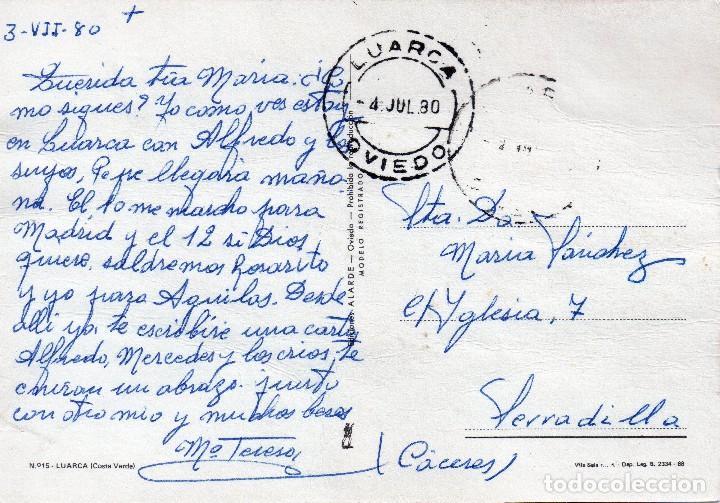 3-VII-80 +
Querida tía María: ¿Có
mo sigues? Yo como ves estoy
en Luarca con Alfredo y los
suyos, Pepe llegará maña
na. El 10 me marcho para
Madrid y el 12 si Dios
quiere, saldremos Rosarito
y yo para Aguilas. Desde
alli ya te escribire una carta
Alfredo, Mercedes y los crios, te
envian un abrazo junto
con otro mio y muchos besos
Mª Teresa
Nº 15 - LUARCA (Costa Verde)
Ediciones ALARDE — Oviedo — Prohibida la reproducción
MODELO REGISTRADO
LUARCA
- 4 JUL.80
OVIEDO
Srta. Dª
María Sánchez
c/ Yglesia, 7
Serradilla
(Cáceres)
Dep. Leg. B. 2334 - 68
todocoleccion.net